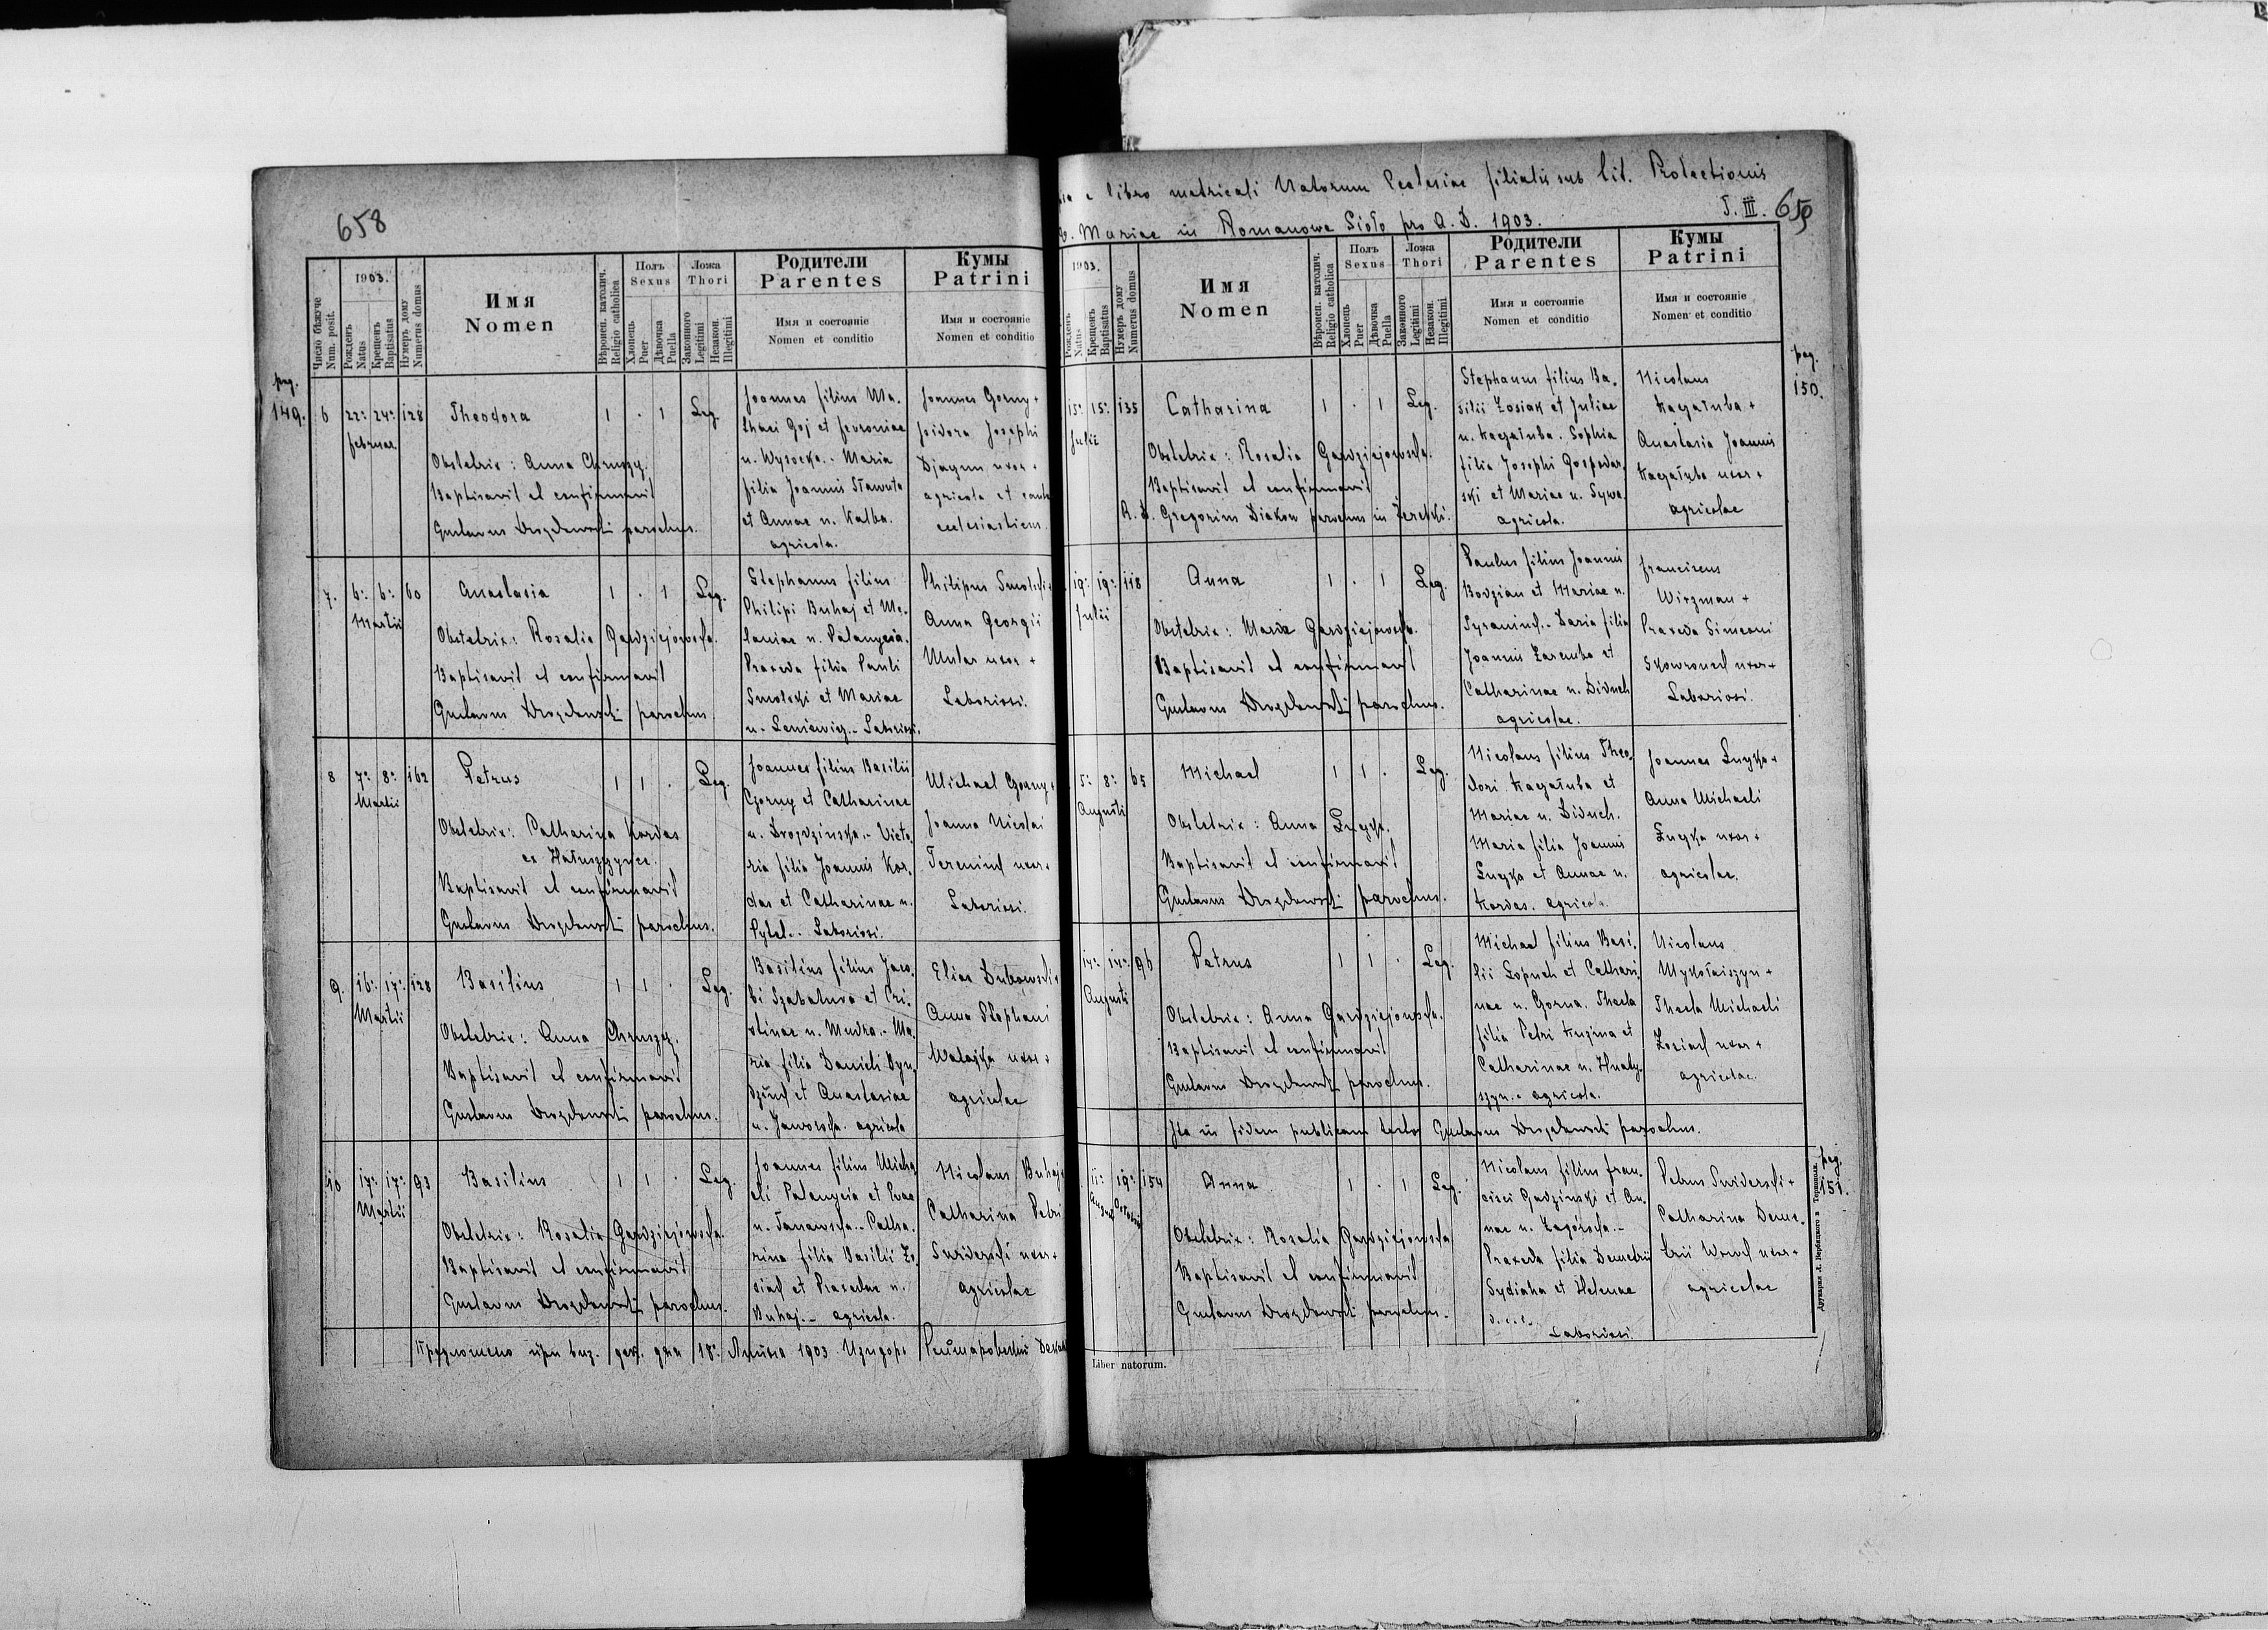 658
Число бѣжуче
Num. posit.
1903.
Рожденъ
Natus
Крещенъ
Baptisatus
Нумеръ дому
Numerus domus
Имя
Nomen
Вѣроисп. католич.
Religio catholica
Полъ
Sexus
Хлопець
Puer
Дѣвочка
Puella
Ложа
Thori
Законного
Legitimi
Незакон.
Illegitimi
Родители
Parentes
Имя и состояніе
Nomen et conditio
Кумы
Patrini
Имя и состояніе
Nomen et conditio
pag.
149.
6 22: 24: 128 Theodora 1 . 1 Leg.
Februar.
Obstetrix: Anna Chruszcz.
Baptisavit et confirmavit
Gustavus Drozdowski parochus.
Joannes filius Ma-
thaei Goj et Fevroniae
n. Wysocka.- Maria
filia Joannis Sławuta
et Annae n. Kalba.
agricola.
Joannes Gorny +
Isidora Josephi
Djagun uxor +
agricola et
ecclesiasticus
7. 6: 6: 60 Anastasia 1 . 1 Leg.
Martii
Obstetrix: Rosalia Gardziejowska.
Baptisavit et confirmavit
Gustavus Drozdowski parochus.
Stephanus filius
Philipi Buhaj et Me-
laniae n. Palanycia.
Praxeda filia Pauli
Smolski et Mariae
n. Leniewicz.- Laboriosi.
Philipus Smolski +
Anna Georgii
Muler uxor +
Laboriosi.
8 7: 8: 162 Petrus 1 1 . Leg.
Martii
Obstetrix: Catharina Kordas
ex Hałuszczyńce.
Baptisavit et confirmavit
Gustavus Drozdowski parochus.
Joannes filius Basilii
Czorny et Catharinae
n. Drozdzinska.- Victo-
ria filia Joannis Kor-
das et Catharinae n.
Pytel.- Laboriosi.
Michael Gorny +
Joanna Nicolai
Tereniuk uxor +
Laboriosi.
9. 16: 17: 128 Basilius 1 1 . Leg.
Martii
Obstetrix: Anna Chruszcz.
Baptisavit et confirmavit
Gustavus Drozdowski parochus.
Basilius filius Jaco-
bi Szabatura et Cri-
stinae n. Mudra.- Ma-
ria filia Danieli
et Anastasiae
n. Jaworska. agricola
Elias Dubowski +
Anna Stephani
Walajka uxor +
agricolae
10 17: 17: 93 Basilius 1 1 . Leg.
Martii
Obstetrix: Rosalia Gardziejowska.
Baptisavit et confirmavit
Gustavus Drozdowski parochus.
Joannes filius Micha-
eli Palanycia et Evae
n. Tanawska.- Catha-
rina filia Basilii Zo-
siak et Praxedae n.
Buhaj.- agricola.
Nicolaus Buhaj +
Catharina Petri
Swiderski uxor +
agricolae
Предложено при виз. дек. дня 18. 1903 Изидоръ
e libro matricali Natorum Ecclesiae filialis sub tit. Protectionis
B. Mariae in Romanowe Sioło pro A. D. 1903.
T. III. 659
1903.
Рожденъ
Natus
Крещенъ
Baptisatus
Нумеръ дому
Numerus domus
Имя
Nomen
Вѣроисп. католич.
Religio catholica
Полъ
Sexus
Хлопець
Puer
Дѣвочка
Puella
Ложа
Thori
Законного
Legitimi
Незакон.
Illegitimi
Родители
Parentes
Имя и состояніе
Nomen et conditio
Кумы
Patrini
Имя и состояніе
Nomen et conditio
pag.
150.
15: 15: 135 Catharina 1 . 1 Leg.
Julii
Obstetrix: Rosalia Gardziejowska.
Baptisavit et confirmavit
R. D. Gregorius Diakow parochus in Zerebki.
Stephanus filius Ba-
silii Zosiak et Juliae
n. Kaczałuba. Sophia
filia Josephi Gospodar-
ski et Mariae n. Sywa.
agricola.
Nicolaus
Kaczałuba +
Anastasia Joannis
Kaczałuba uxor +
agricolae
19: 19: 118 Anna 1 . 1 Leg.
Julii
Obstetrix: Maria Gardziejowska.
Baptisavit et confirmavit
Gustavus Drozdowski parochus.
Paulus filius Joannis
Bodzian et Mariae n.
Daria filia
Joannis Zaremba et
Catharinae n. Diduch
agricolae.
Franciscus
Wirzman +
Praxeda Simeoni
Skowronek uxor +
Laboriosi.
5: 8: 65 Michael 1 1 . Leg.
Augusti
Obstetrix: Anna Łuczka.
Baptisavit et confirmavit
Gustavus Drozdowski parochus.
Nicolaus filius Theo-
dori Kaczałuba et
Mariae n. Diduch.
Maria filia Joannis
Łuczka et Annae n.
Kordas. agricola.
Joannes Łuczka +
Anna Michaeli
Łuczka uxor +
agricolae.
14: 14: 96 Petrus 1 1 . Leg.
Augusti
Obstetrix: Anna Gardziejowska.
Baptisavit et confirmavit
Gustavus Drozdowski parochus.
Michael filius Basi-
lii Łopuch et Cathari-
nae n. Gorna. Thecla
filia Petri Kuzma et
Catharinae n. Hnaty-
szyn.- agricola.
Nicolaus
Mykołaiszyn +
Thecla Michaeli
Zosiak uxor +
agricolae.
Ita in fidem publicam testor Gustavus Drozdowski parochus.
pag.
151.
11: 19: 154 Anna 1 . 1 Leg.
August Octobri
Obstetrix: Rosalia Gardziejowska
Baptisavit et confirmavit
Gustavus Drozdowski parochus.
Nicolaus filius Fran-
cisci Gudzinski et An-
nae n. Zagórska.-
Praxeda filia Demetrii
Sydiaha et Helenae
Laboriosi.
Petrus Swiderski +
Catharina Deme-
trii Wowk uxor +
agricolae
Liber natorum.
Друкарня Л. Вербицкого в Тернополи.